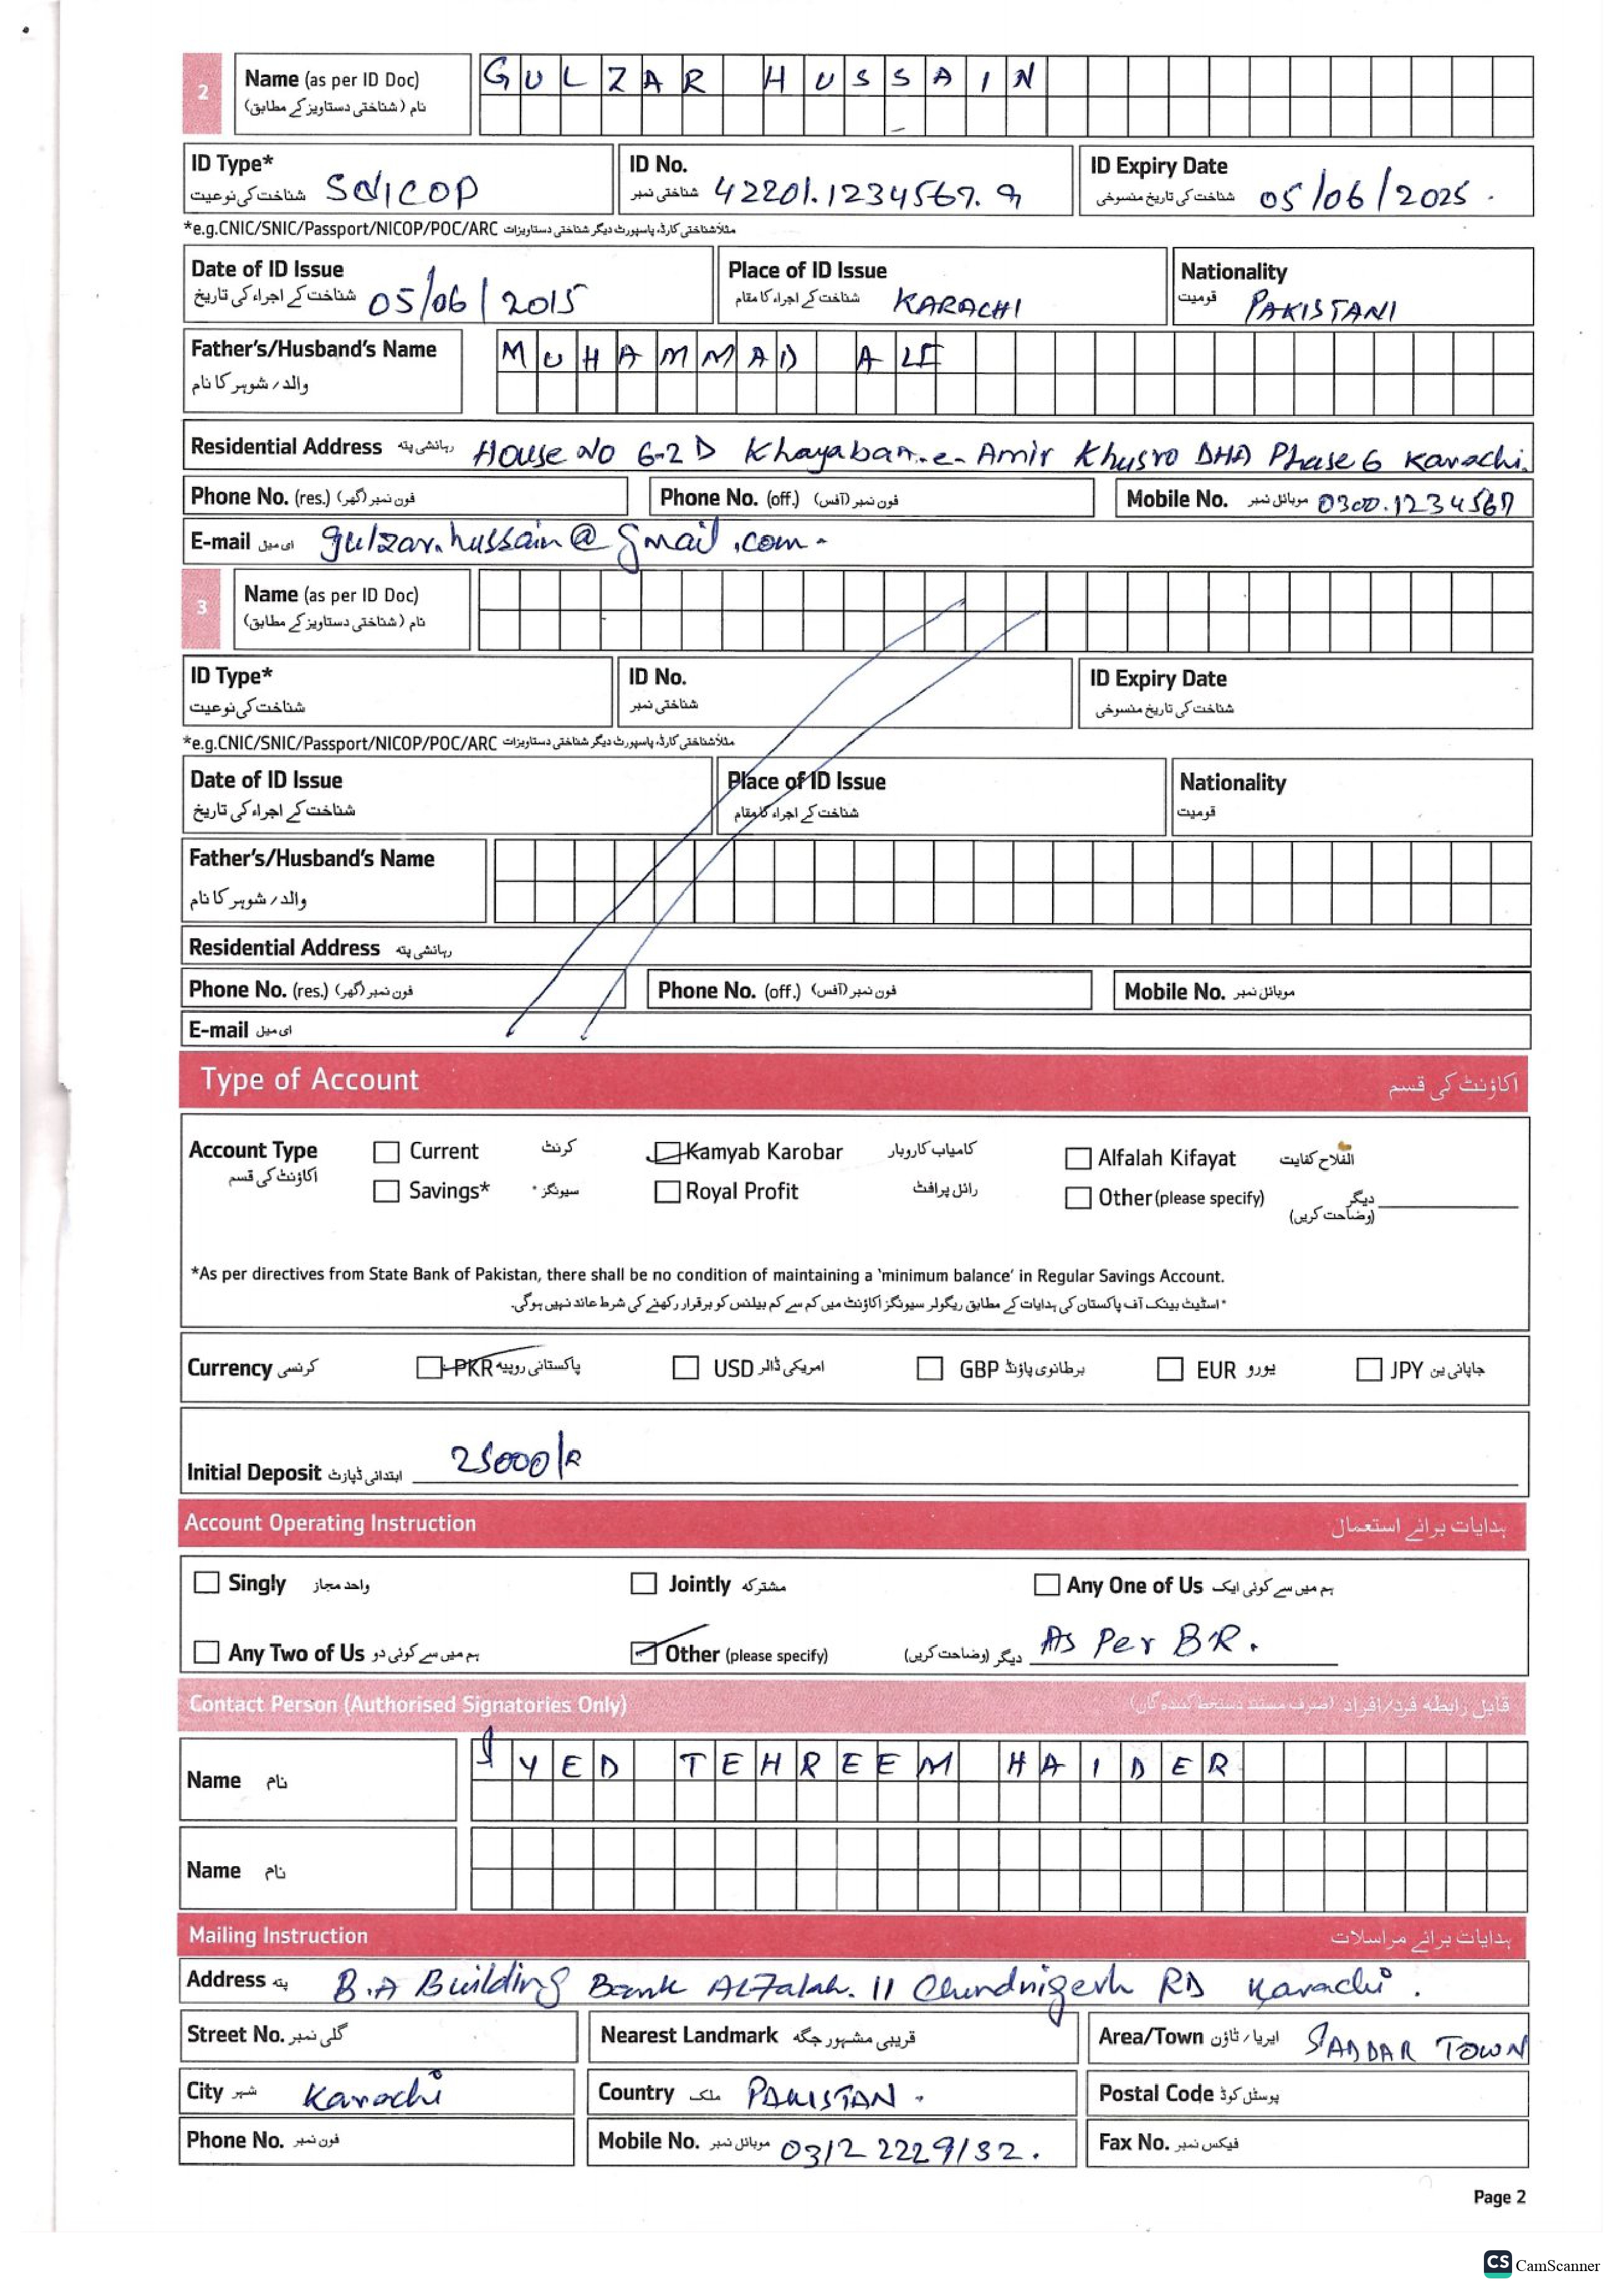 2 Name (as per ID Doc) GULZAR HUSSAIN
نام (شناختی دستاویز کے مطابق)
ID Type* ID No. ID Expiry Date
شناخت کی نوعیت SNICOP شناختی نمبر 42201.1234567.9 شناخت کی تاریخ منسوخی 05/06/2025.
*e.g.CNIC/SNIC/Passport/NICOP/POC/ARC مثلاً شناختی کارڈ، پاسپورٹ دیگر شناختی دستاویزات
Date of ID Issue Place of ID Issue Nationality
شناخت کے اجراء کی تاریخ 05/06/2015 شناخت کے اجراء کا مقام KARACHI قومیت PAKISTANI
Father's/Husband's Name MUHAMMAD ALI
والد/شوہر کا نام
Residential Address رہائشی پتہ House No 6-2D Khayaban-e-Amir Khusro DHA Phase 6 Karachi.
Phone No. (res.) فون نمبر (گھر) Phone No. (off.) فون نمبر (آفس) Mobile No. موبائل نمبر 0300.1234567
E-mail ای میل gulzar.hussain@gmail.com.
3 Name (as per ID Doc)
نام (شناختی دستاویز کے مطابق)
ID Type* ID No. ID Expiry Date
شناخت کی نوعیت شناختی نمبر شناخت کی تاریخ منسوخی
*e.g.CNIC/SNIC/Passport/NICOP/POC/ARC مثلاً شناختی کارڈ، پاسپورٹ دیگر شناختی دستاویزات
Date of ID Issue Place of ID Issue Nationality
شناخت کے اجراء کی تاریخ شناخت کے اجراء کا مقام قومیت
Father's/Husband's Name
والد/شوہر کا نام
Residential Address رہائشی پتہ
Phone No. (res.) فون نمبر (گھر) Phone No. (off.) فون نمبر (آفس) Mobile No. موبائل نمبر
E-mail ای میل
Type of Account اکاؤنٹ کی قسم
Account Type Current کرنٹ Kamyab Karobar کامیاب کاروبار Alfalah Kifayat الفلاح کفایت
اکاؤنٹ کی قسم Savings* سیونگز* Royal Profit رائل پرافٹ Other (please specify) دیگر (وضاحت کریں)
*As per directives from State Bank of Pakistan, there shall be no condition of maintaining a 'minimum balance' in Regular Savings Account.
*اسٹیٹ بینک آف پاکستان کی ہدایات کے مطابق ریگولر سیونگز اکاؤنٹ میں کم سے کم بیلنس کو برقرار رکھنے کی شرط عائد نہیں ہوگی۔
Currency کرنسی PKR پاکستانی روپیہ USD امریکی ڈالر GBP برطانوی پاؤنڈ EUR یورو JPY جاپانی ین
Initial Deposit ابتدائی ڈپازٹ 25000/R
Account Operating Instruction ہدایات برائے استعمال
Singly واحد مجاز Jointly مشترکہ Any One of Us ہم میں سے کوئی ایک
Any Two of Us ہم میں سے کوئی دو Other (please specify) دیگر (وضاحت کریں) As Per B.R.
Contact Person (Authorised Signatories Only) قابل رابطہ فرد/افراد (صرف مستند دستخط کنندگان)
Name نام SYED TEHREEM HAIDER
Name نام
Mailing Instruction ہدایات برائے مراسلات
Address پتہ B.A Building Bank ALFalah. 11 Chundrigerh RD Karachi.
Street No. گلی نمبر Nearest Landmark قریبی مشہور جگہ Area/Town ایریا/ٹاؤن SADDAR TOWN
City شہر Karachi Country ملک PAKISTAN. Postal Code پوسٹل کوڈ
Phone No. فون نمبر Mobile No. موبائل نمبر 0312 2229132. Fax No. فیکس نمبر
Page 2
CS CamScanner